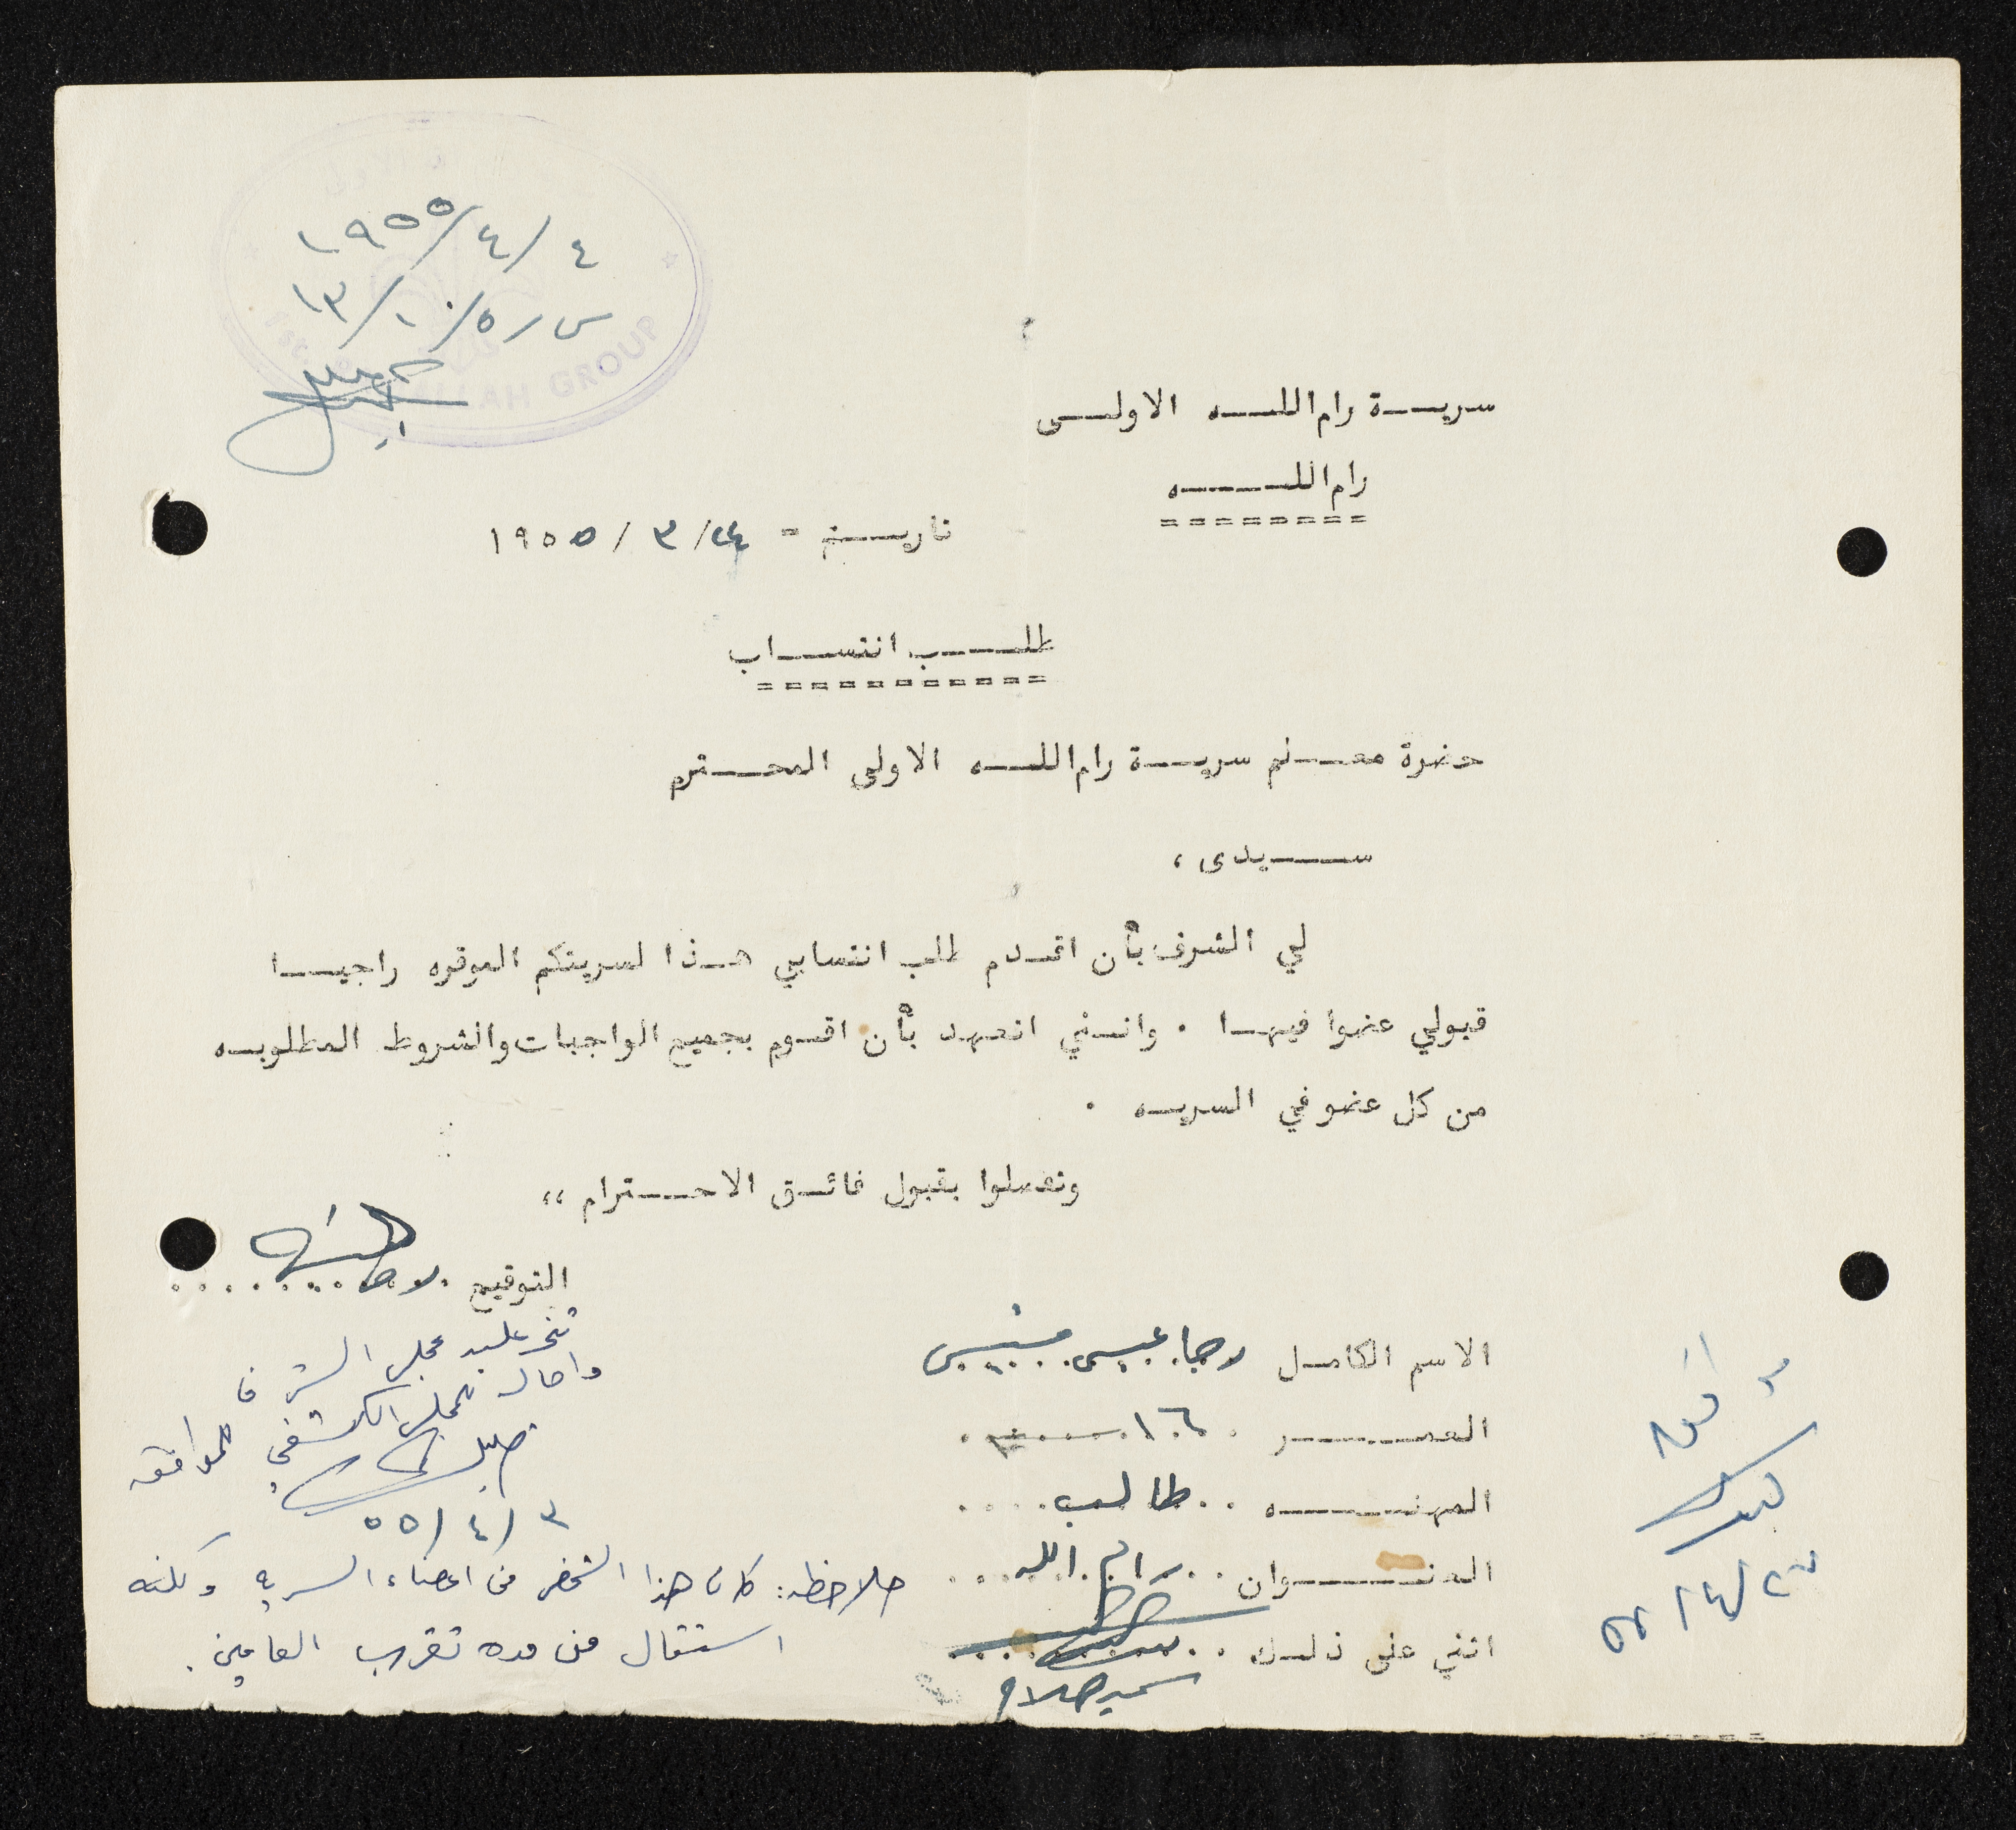 ١٩٥٥/٤/٤
س ر ٥/١٠/١٣
1st. RAMALLAH GROUP
سرية رام الله الاولى
رام الله
تاريخ = ٢٤/ ٣ / ١٩٥٥
طلب انتساب
حضرة معلم سرية رام الله الاولى المحترم
سيدى ،
لي الشرف بأن اقدم طلب انتسابي هذا لسريتكم الموقره راجيا
قبولي عضوا فيها . وانني اتعهد بأن اقوم بجميع الواجبات والشروط المطلوبه
من كل عضو في السريه .
وتفضلوا بقبول فائق الاحترام ،،
التوقيع
الاسم الكامل رجا عيسى منيس
العمر ١٦
المهنه طالب
العنوان رام الله
اثني على ذلك
سمير صلاح
مجلس الشرف
واحال للمجلس الكشفي للموافقه
خليل
٣ / ٤ / ٥٥
ملاحظه : كان هذا الشخص من اعضاء السريه ولكنه
استقال من مده تقرب العامين .
اوافق